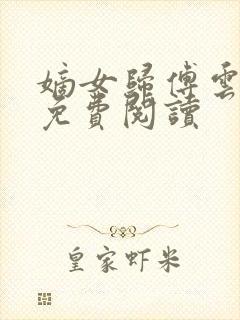 嫡女歸傅雲
免費閱讀
皇家虾米